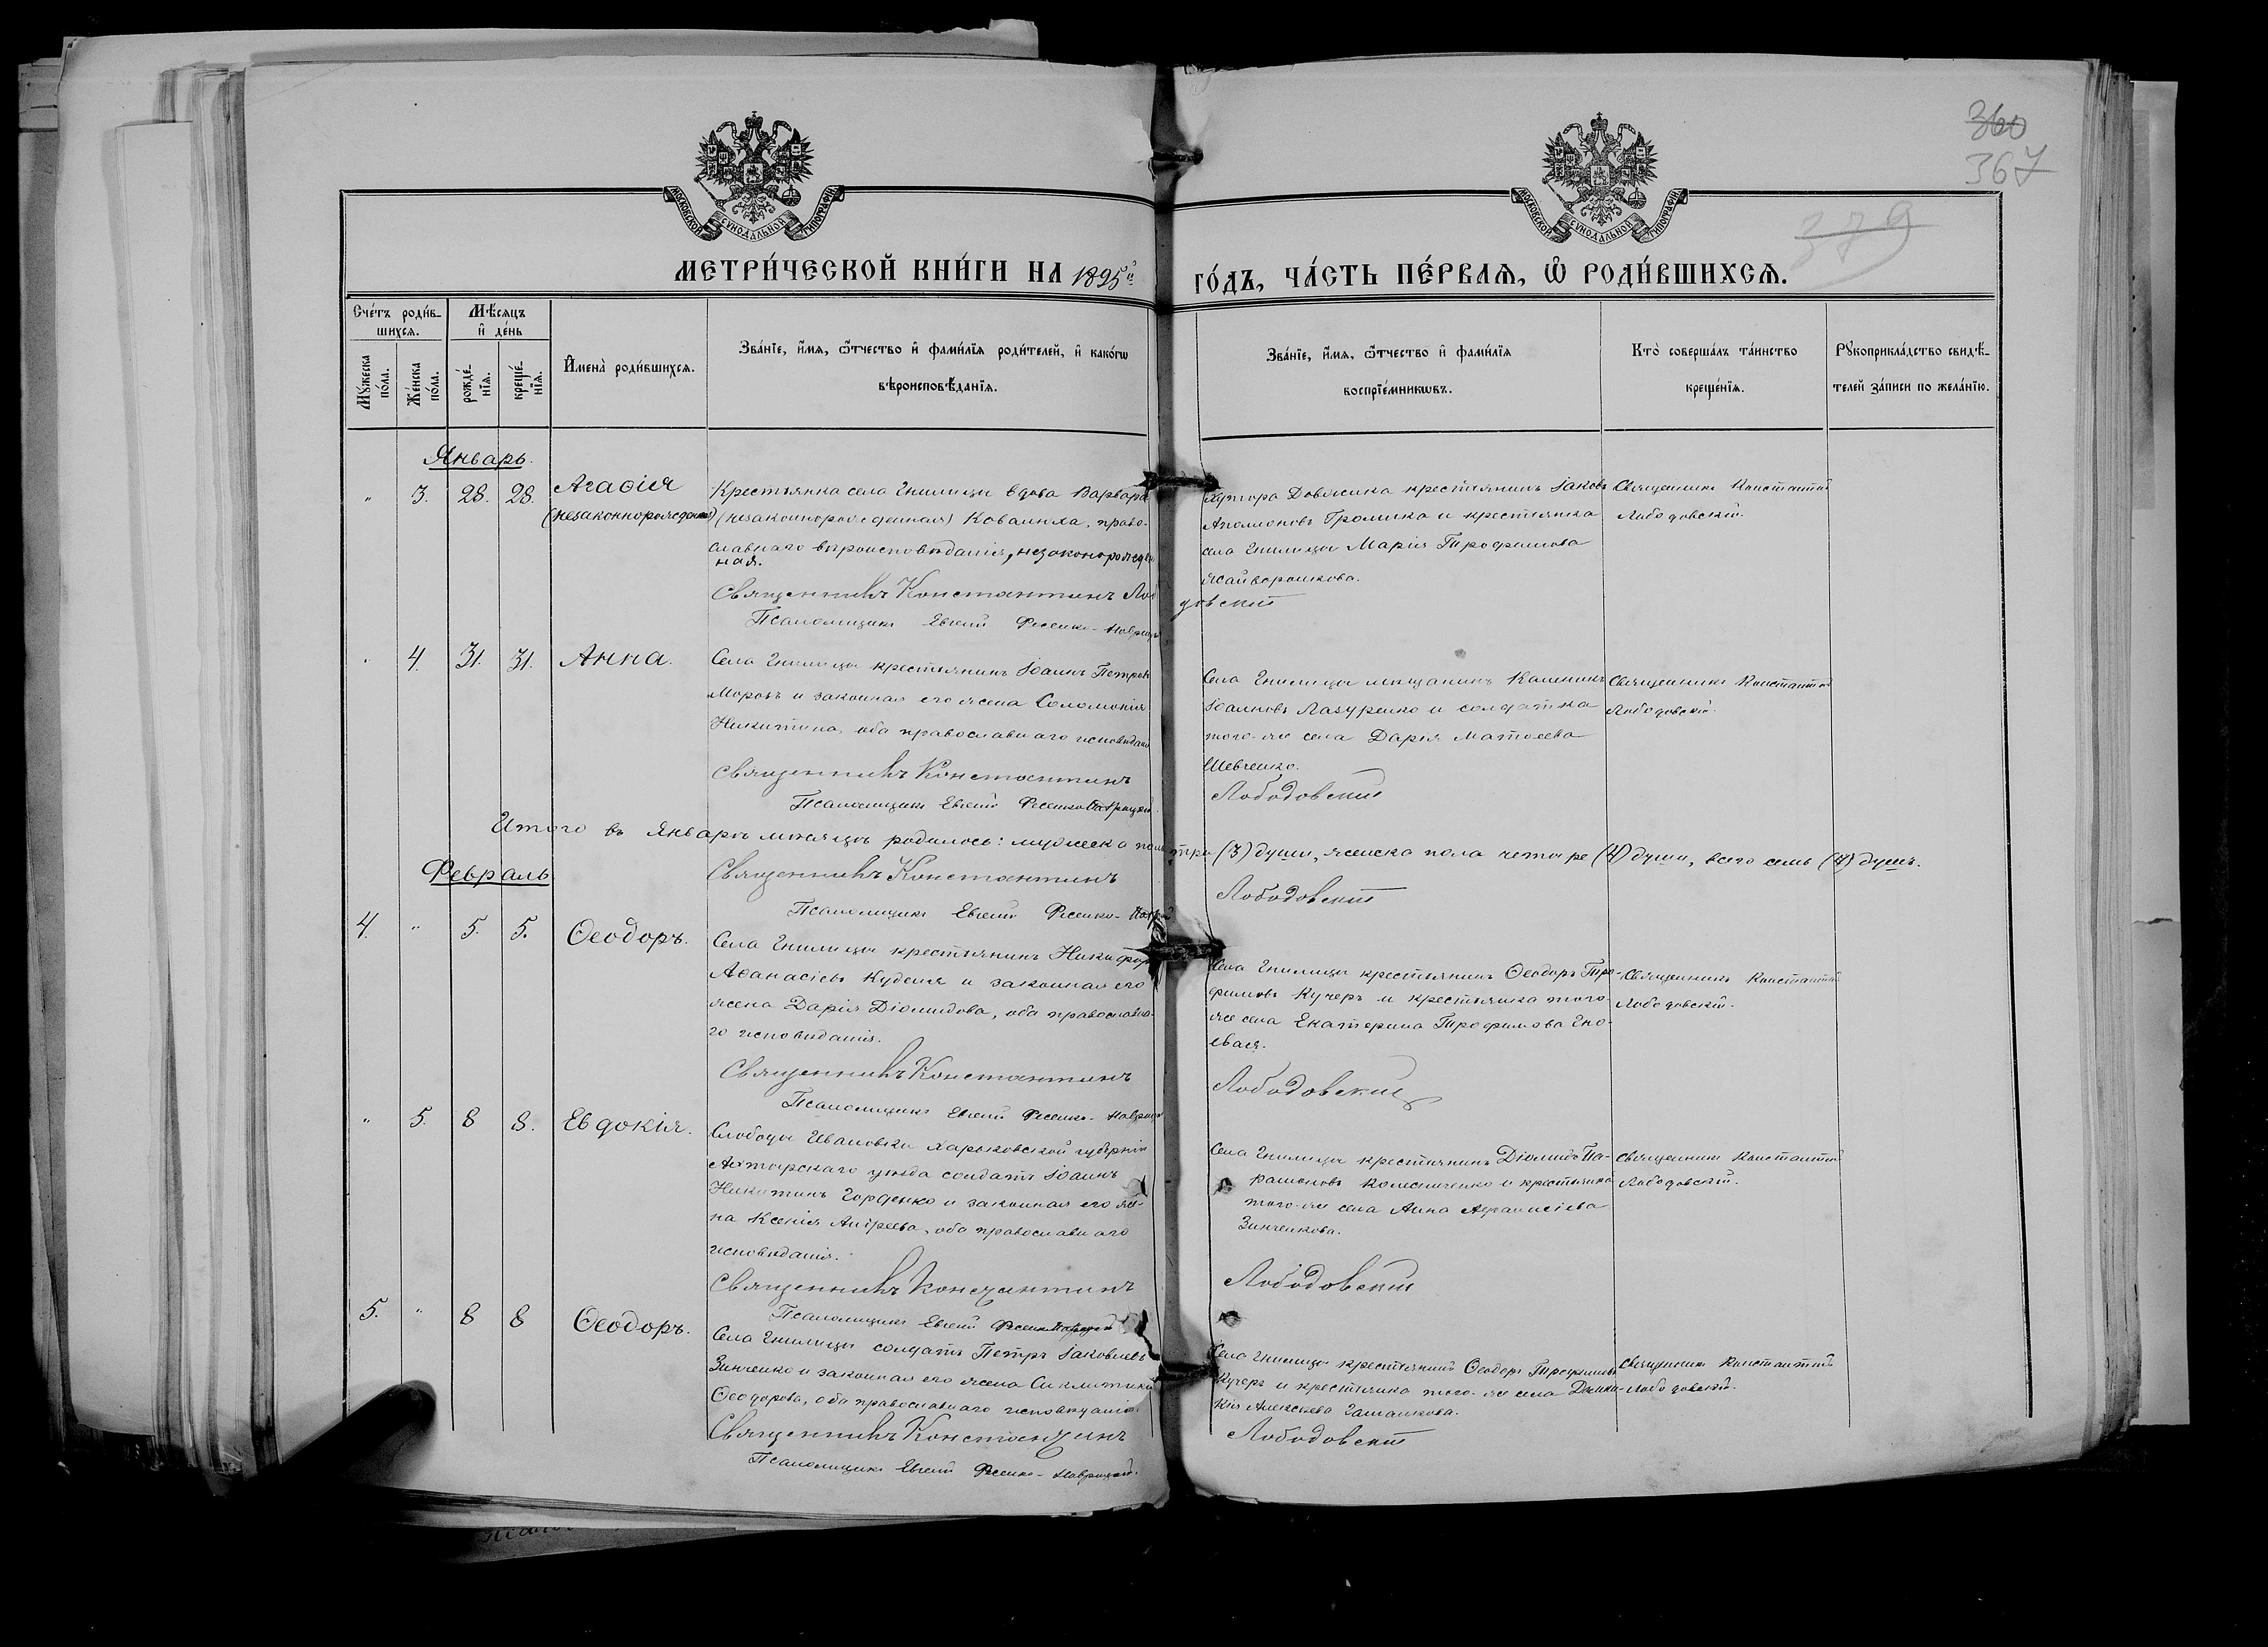 360
367
379
МОСКОВСКОЙ СѴНОДАЛЬНОЙ ТИПОГРАФІИ
МОСКОВСКОЙ СѴНОДАЛЬНОЙ ТИПОГРАФІИ
МЕТРИ́ЧЕСКОЙ КНИ́ГИ НА 1895й ГО́ДЪ, ЧА́СТЬ ПЕ́РВАѦ, Ѽ РОДИ́ВШИХСѦ.
Сче́тъ роди́в-
шихсѧ.
Мѣ́сѧцъ
и҆ де́нь
Мꙋжеска по́ла.
Же́нска по́ла.
рожде́-
нїѧ.
креще́-
нїѧ.
И҆мена̀ роди́вшихсѧ.
Зва́нїе, и҆́мѧ, ѻ҆́тчество и҆ фами́лїѧ роди́телей, и҆ како́гѡ
вѣроисповѣ́данїѧ.
Зва́нїе, и҆́мѧ, ѻ҆́тчество и҆ фами́лїѧ
воспрїе́мникѡвъ.
Кто̀ соверша́лъ та́инство
креще́нїѧ.
Рꙋкоприкла́дство свидѣ́-
телей за́писи по жела́нїю.
Январь.
" 3. 28. 28. Агаѳія
(незаконнорожденная)
Крестьянка села Гнилицы вдова Варвара
(незаконнорожденная) Ковалиха, право-
славнаго вѣроисповѣданія, незаконорожден
ная.
Священникъ Константинъ Лободовскій
Псаломщикъ Евгеній Фесенко-Навроцкій
Хутора Довжика крестьянинъ Іаковъ
Громика и крестьянка
села Гнилицы Марія Трофимова
Священникъ Константинъ
Лободовскій.
" 4. 31. 31. Анна.
Села Гнилицы крестьянинъ Іоаннъ Петровъ
Морозъ и законная его жена Соломонія
Никитина, оба православнаго исповѣданія
Священникъ Константинъ Лободовскій
Псаломщикъ Евгеній Фесенко-Навроцкій.
Села Гнилицы мѣщанинъ Калиникъ
Іоанновъ Лазуренко и солдатка
того-же села Дарія Матѳеева
Шевченко.
Священникъ Константинъ
Лободовскій.
Итого въ Январѣ мѣсяцѣ родилось: мужеска пола три (3) души, женска пола четыре (4) души, всего семь (7) душъ.
Священникъ Константинъ Лободовскій
Псаломщикъ Евгеній Фесенко-Навроцкій
Февраль
4. " 5. 5. Ѳеодоръ.
Села Гнилицы крестьянинъ Никифоръ
Аѳанасіевъ Куделя и законная его
жена Дарія Діомидова, оба православна-
го исповѣданія.
Священникъ Константинъ Лободовскій
Псаломщикъ Евгеній Фесенко-Навроцкій
Села Гнилицы крестьянинъ Ѳеодоръ Тро-
фимовъ Кучеръ и крестьянка того-
же села Екатерина Трофимова Гно-
евая.
Священникъ Константинъ
Лободовскій.
" 5. 8 8. Евдокія.
Слободы Ивановки Харьковской губерніи
Ахтырскаго уѣзда солдатъ Іоаннъ
Никитинъ Горденко и законная его же-
на Ксенія Андреева, оба православнаго
исповѣданія.
Священникъ Константинъ Лободовскій
Псаломщикъ Евгеній Фесенко-Навроцкій
Села Гнилицы крестьянинъ Діомидъ Па-
рамоновъ Колесниченко и крестьянка
того-же села Анна Афанасіева
Зинченкова.
Священникъ Константинъ
Лободовскій.
5. " 8 8 Ѳеодоръ.
Села Гнилицы солдатъ Петръ Іаковлевъ
Зинченко и законная его жена Синклитикія
Ѳеодорова, оба православнаго исповѣданія.
Священникъ Константинъ Лободовскій
Псаломщикъ Евгеній Фесенко-Навроцкій.
Села Гнилицы крестьянинъ Ѳеодоръ Трофимовъ
Кучеръ и крестьянка того-же села Домни-
кія Алексѣева
Священникъ Константинъ
Лободовскій.